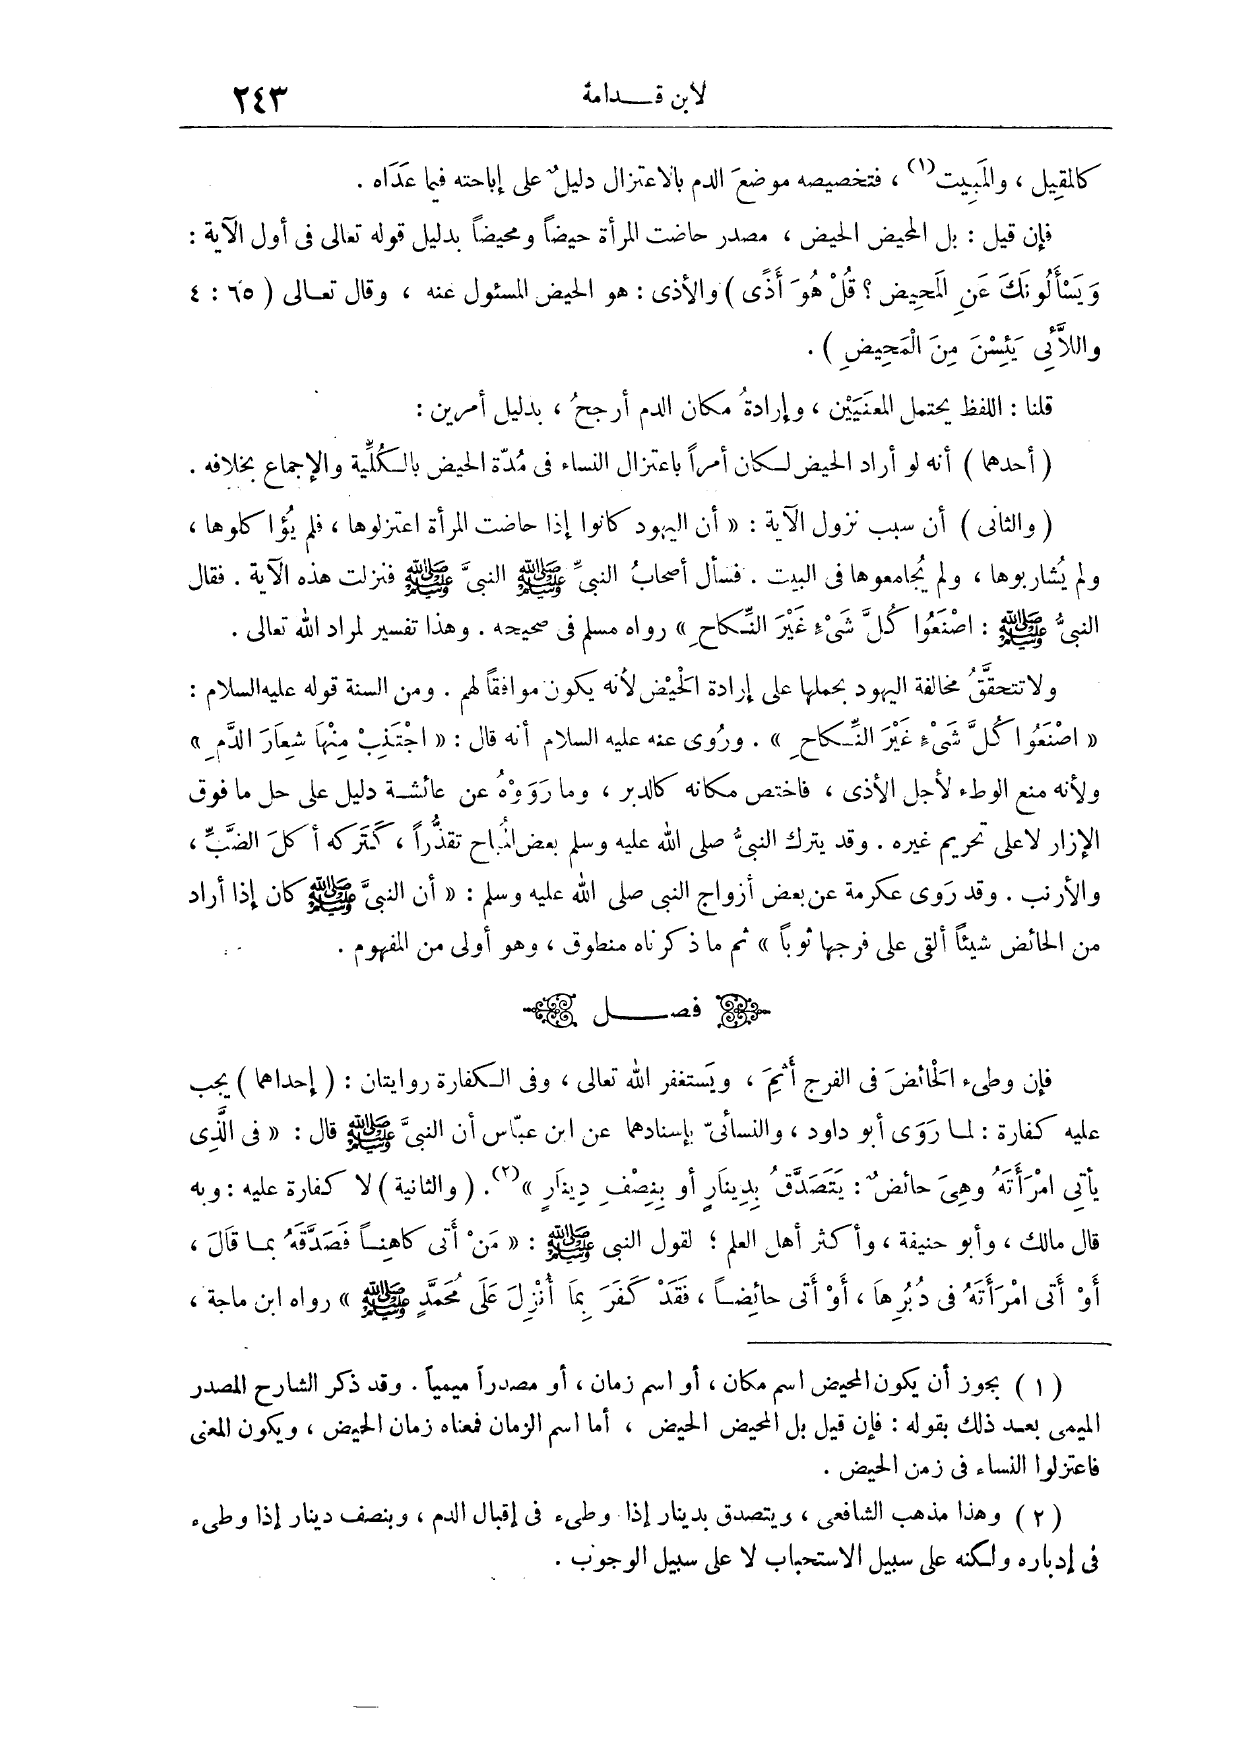 لابن قـــدامة ٢٤٣
كالمَقِيل ، والمَبِيت(١) ، فتخصيصه موضعَ الدم بالاعتزال دليلٌ على إباحته فيما عَدَاه .
فإن قيل : بل المحيض الحيض ، مصدر حاضت المرأة حيضاً ومحيضاً بدليل قوله تعالى فى أول الآية :
وَيَسْأَلُونَكَ عَنِ المَحِيضِ ؟ قُلْ هُوَ أَذًى ) والأذى : هو الحيض المسئول عنه ، وقال تعـالى ( ٦٥ : ٤
واللاَّئِى يَئِسْنَ مِنَ الْمَحِيضِ ) .
قلنا : اللفظ يحتمل المعنَيَيْن ، وإرادةُ مكان الدم أرجحُ ، بدليل أمرين :
( أحدهما ) أنه لو أراد الحيض لـكان أمراً باعتزال النساء فى مُدّة الحيض بالـكُلِّية والإجماع بخلافه .
( والثانى ) أن سبب نزول الآية : « أن اليهود كانوا إذا حاضت المرأة اعتزلوها ، فلم يُؤاكلوها ،
ولم يُشاربوها ، ولم يُجامعوها فى البيت . فسأل أصحابُ النبىِّ ﷺ النبىَّ ﷺ فنزلت هذه الآية . فقال
النبىُّ ﷺ : اصْنَعُوا كُلَّ شَىْءٍ غَيْرَ النِّـكاحِ » رواه مسلم فى صحيحه . وهذا تفسير لمراد الله تعالى .
ولا تتحقَّقُ مخالفة اليهود بحملها على إرادة الحَيْض لأنه يكون موافقاً لهم . ومن السنة قوله عليه السلام :
« اصْنَعُوا كُلَّ شَىْءٍ غَيْرَ النِّـكاحِ » . ورُوى عنه عليه السلام أنه قال : « اجْتَنِبْ مِنْهَا شِعَارَ الدَّمِ »
ولأنه منع الوطء لأجل الأذى ، فاختص مكانه كالدبر ، وما رَوَوْهُ عن عائشـة دليل على حل ما فوق
الإزار لا على تحريم غيره . وقد يترك النبىُّ صلى الله عليه وسلم بعض المُباح تقذُّراً ، كَتَركه أكلَ الضَّبِّ ،
والأرنب . وقد رَوى عكرمة عن بعض أزواج النبى صلى الله عليه وسلم : « أن النبىَّ ﷺ كان إذا أراد
من الحائض شيئاً ألقى على فرجها ثوباً » ثم ما ذكرناه منطوق ، وهو أولى من المفهوم .
فصــــل
فإن وطىء الحَائضَ فى الفرج أَثِمَ ، ويَستغفر الله تعالى ، وفى الـكفارة روايتان : ( إحداهما ) يجب
عليه كفارة : لمـا رَوَى أبو داود ، والنسائىّ بإسنادهما عن ابن عبّاس أن النبىَّ ﷺ قال : « فى الَّذِى
يأتى امْرَأَتَهُ وهِىَ حائضٌ : يَتَصَدَّقُ بِدِينَارٍ أو بِنِصْفِ دِينَارٍ »(٢) . ( والثانية ) لا كفارة عليه : وبه
قال مالك ، وأبو حنيفة ، وأكثر أهل العلم ؛ لقول النبى ﷺ : « مَنْ أَتَى كاهِنـاً فَصَدَّقَهُ بمـا قَالَ ،
أَوْ أَتَى امْرَأَتَهُ فى دُبُرِهَا ، أَوْ أَتَى حائِضـاً ، فَقَدْ كَفَرَ بِمَا أُنْزِلَ عَلَى مُحَمَّدٍ ﷺ » رواه ابن ماجة ،
( ١ ) يجوز أن يكون المحيض اسم مكان ، أو اسم زمان ، أو مصدراً ميمياً . وقد ذكر الشارح المصدر
الميمى بعـد ذلك بقوله : فإن قيل بل المحيض الحيض ، أما اسم الزمان فمعناه زمان الحيض ، ويكون المعنى
فاعتزلوا النساء فى زمن الحيض .
( ٢ ) وهذا مذهب الشافعى ، ويتصدق بدينار إذا وطىء فى إقبال الدم ، وبنصف دينار إذا وطىء
فى إدباره ولكنه على سبيل الاستحباب لا على سبيل الوجوب .